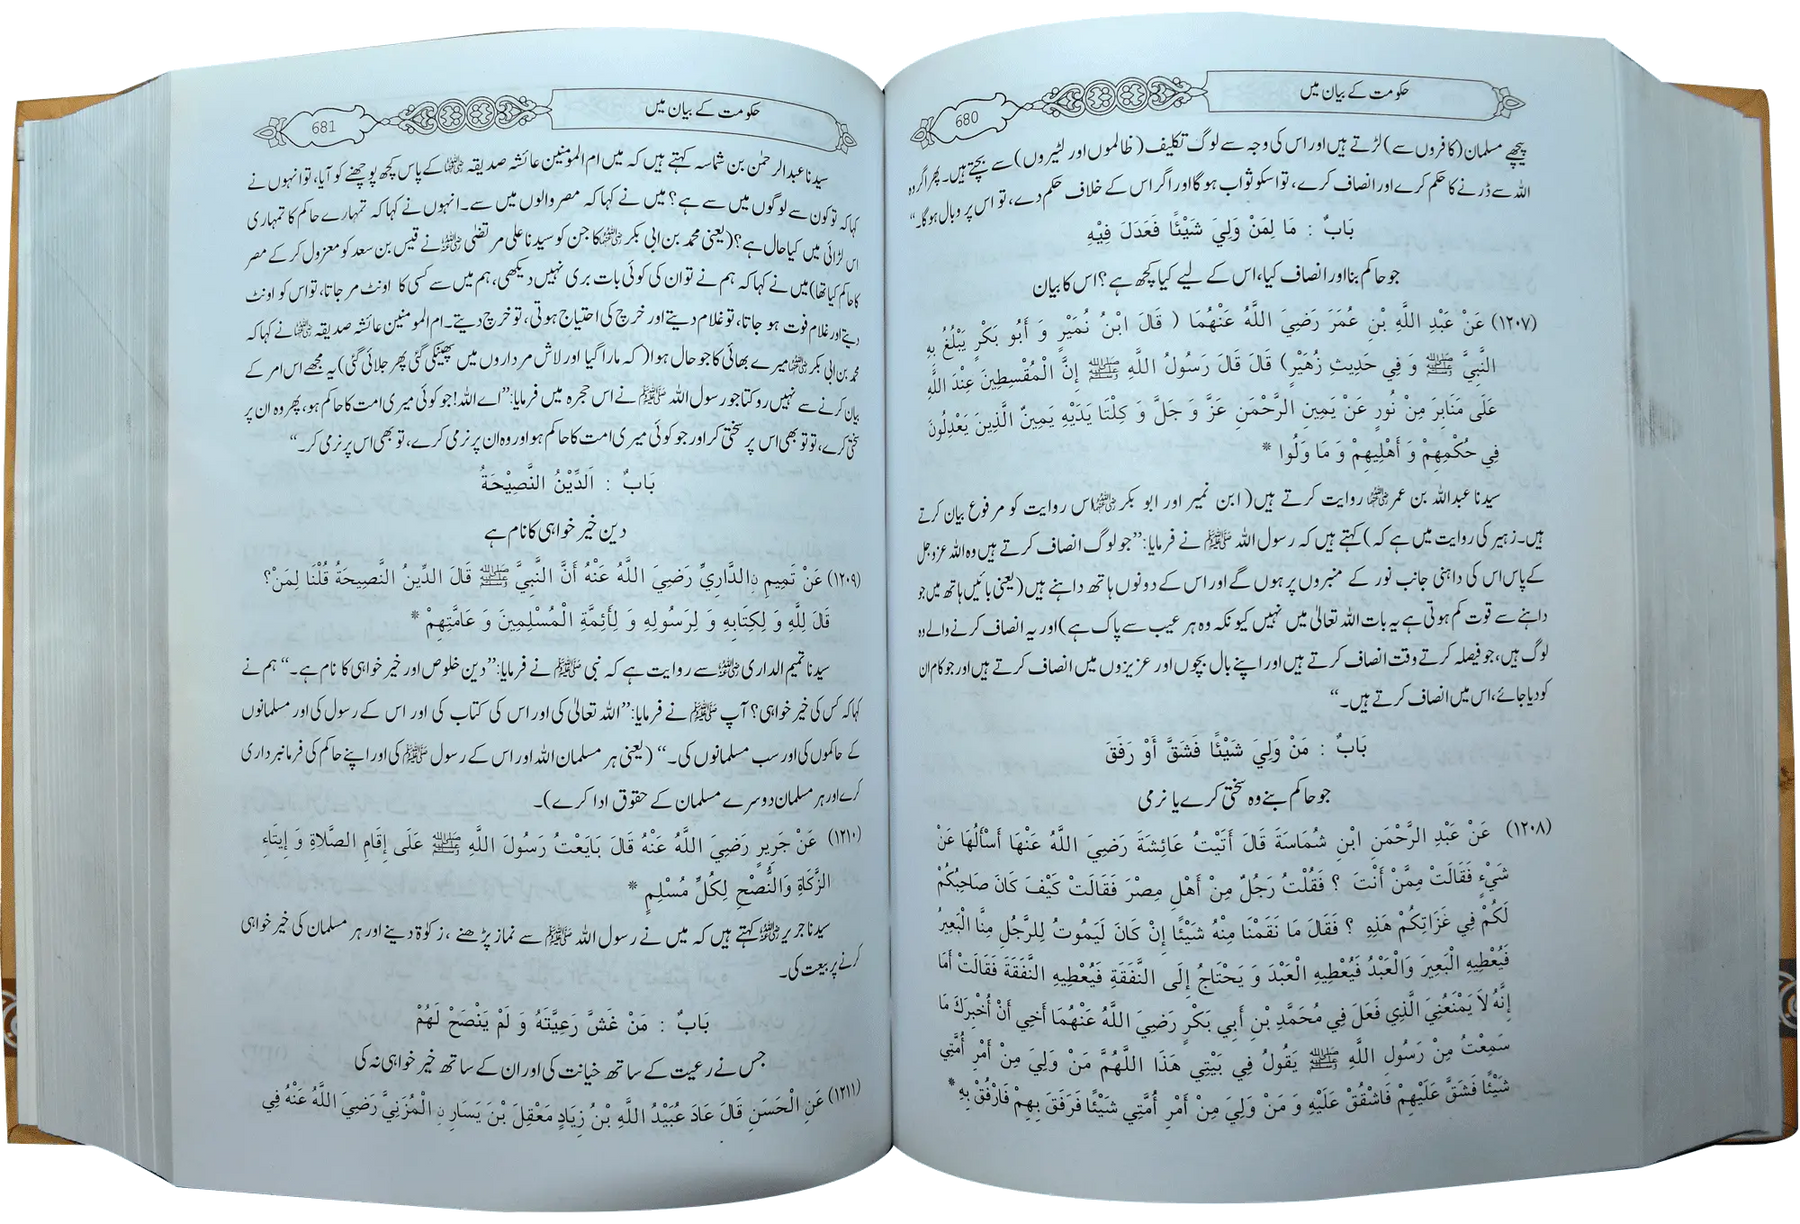 حکومت کے بیان میں
680
پیچھے مسلمان (کافروں سے) لڑتے ہیں اور اس کی وجہ سے لوگ تکلیف (ظالموں اور لٹیروں) سے بچتے ہیں۔ پھر اگر وہ
اللہ سے ڈرنے کا حکم کرے اور انصاف کرے، تو اسکو ثواب ہو گا اور اگر اس کے خلاف حکم دے، تو اس پر وبال ہو گا۔“
بَابٌ : مَا لِمَنْ وَلِيَ شَيْئًا فَعَدَلَ فِيْهِ
جو حاکم بنا اور انصاف کیا، اس کے لیے کیا کچھ ہے؟ اس کا بیان
(١٢٠٧) عَنْ عَبْدِ اللَّهِ بْنِ عُمَرَ رَضِيَ اللَّهُ عَنْهُمَا ( قَالَ ابْنُ نُمَيْرٍ وَ أَبُو بَكْرٍ يَبْلُغُ بِهِ
النَّبِيَّ ﷺ وَ فِي حَدِيثِ زُهَيْرٍ) قَالَ قَالَ رَسُولُ اللَّهِ ﷺ إِنَّ الْمُقْسِطِينَ عِنْدَ اللَّهِ
عَلَى مَنَابِرَ مِنْ نُورٍ عَنْ يَمِينِ الرَّحْمَنِ عَزَّ وَ جَلَّ وَ كِلْتَا يَدَيْهِ يَمِينٌ الَّذِينَ يَعْدِلُونَ
فِي حُكْمِهِمْ وَ أَهْلِيهِمْ وَ مَا وَلُوا *
سیدنا عبداللہ بن عمر ؓ روایت کرتے ہیں ( ابن نمیر اور ابو بکر ؓ اس روایت کو مرفوع بیان کرتے
ہیں۔ زہیر کی روایت میں ہے کہ) کہتے ہیں کہ رسول اللہ ﷺ نے فرمایا: ”جو لوگ انصاف کرتے ہیں وہ اللہ عزوجل
کے پاس اس کی داہنی جانب نور کے منبروں پر ہوں گے اور اس کے دونوں ہاتھ داہنے ہیں (یعنی بائیں ہاتھ میں جو
داہنے سے قوت کم ہوتی ہے یہ بات اللہ تعالیٰ میں نہیں کیونکہ وہ ہر عیب سے پاک ہے) اور یہ انصاف کرنے والے وہ
لوگ ہیں، جو فیصلہ کرتے وقت انصاف کرتے ہیں اور اپنے بال بچوں اور عزیزوں میں انصاف کرتے ہیں اور جو کام ان
کو دیا جائے، اس میں انصاف کرتے ہیں۔“
بَابٌ : مَنْ وَلِيَ شَيْئًا فَشَقَّ أَوْ رَفَقَ
جو حاکم بنے وہ سختی کرے یا نرمی
(١٢٠٨) عَنْ عَبْدِ الرَّحْمَنِ ابْنِ شُمَاسَةَ قَالَ أَتَيْتُ عَائِشَةَ رَضِيَ اللَّهُ عَنْهَا أَسْأَلُهَا عَنْ
شَيْءٍ فَقَالَتْ مِمَّنْ أَنْتَ ؟ فَقُلْتُ رَجُلٌ مِنْ أَهْلِ مِصْرَ فَقَالَتْ كَيْفَ كَانَ صَاحِبُكُمْ
لَكُمْ فِي غَزَاتِكُمْ هَذِهِ ؟ فَقَالَ مَا نَقَمْنَا مِنْهُ شَيْئًا إِنْ كَانَ لَيَمُوتُ لِلرَّجُلِ مِنَّا الْبَعِيرُ
فَيُعْطِيهِ الْبَعِيرَ وَالْعَبْدُ فَيُعْطِيهِ الْعَبْدَ وَ يَحْتَاجُ إِلَى النَّفَقَةِ فَيُعْطِيهِ النَّفَقَةَ فَقَالَتْ أَمَا
إِنَّهُ لاَ يَمْنَعُنِي الَّذِي فَعَلَ فِي مُحَمَّدِ بْنِ أَبِي بَكْرٍ رَضِيَ اللَّهُ عَنْهُمَا أَخِي أَنْ أُخْبِرَكَ مَا
سَمِعْتُ مِنْ رَسُولِ اللَّهِ ﷺ يَقُولُ فِي بَيْتِي هَذَا اللَّهُمَّ مَنْ وَلِيَ مِنْ أَمْرِ أُمَّتِي
شَيْئًا فَشَقَّ عَلَيْهِمْ فَاشْقُقْ عَلَيْهِ وَ مَنْ وَلِيَ مِنْ أَمْرِ أُمَّتِي شَيْئًا فَرَفَقَ بِهِمْ فَارْفُقْ بِهِ *
حکومت کے بیان میں
681
سیدنا عبدالرحمٰن بن شماسہ کہتے ہیں کہ میں ام المومنین عائشہ صدیقہ ؓ کے پاس کچھ پوچھنے کو آیا، تو انہوں نے
کہا کہ تو کون سے لوگوں میں سے ہے؟ میں نے کہا کہ مصر والوں میں سے۔ انہوں نے کہا کہ تمہارے حاکم کا تمہاری
اس لڑائی میں کیا حال ہے؟ (یعنی محمد بن ابی بکر ؓ کا جن کو سیدنا علی مرتضٰی ؓ نے قیس بن سعد کو معزول کر کے مصر
کا حاکم کیا تھا) میں نے کہا کہ ہم نے تو ان کی کوئی بات بری نہیں دیکھی، ہم میں سے کسی کا اونٹ مر جاتا، تو اس کو اونٹ
دیتے اور غلام فوت ہو جاتا، تو غلام دیتے اور خرچ کی احتیاج ہوتی، تو خرچ دیتے۔ ام المومنین عائشہ صدیقہ ؓ نے کہا کہ
محمد بن ابی بکر ؓ میرے بھائی کا جو حال ہوا (کہ مارا گیا اور لاش مرداروں میں پھینکی گئی پھر جلائی گئی) یہ مجھے اس امر کے
بیان کرنے سے نہیں روکتا جو رسول اللہ ﷺ نے اس حجرہ میں فرمایا: ”اے اللہ! جو کوئی میری امت کا حاکم ہو، پھر وہ ان پر
سختی کرے، تو تو بھی اس پر سختی کر اور جو کوئی میری امت کا حاکم ہو اور وہ ان پر نرمی کرے، تو بھی اس پر نرمی کر۔“
بَابٌ : اَلدِّيْنُ النَّصِيْحَةُ
دین خیر خواہی کا نام ہے
(١٢٠٩) عَنْ تَمِيمِ نِ الدَّارِيِّ رَضِيَ اللَّهُ عَنْهُ أَنَّ النَّبِيَّ ﷺ قَالَ الدِّينُ النَّصِيحَةُ قُلْنَا لِمَنْ؟
قَالَ لِلَّهِ وَ لِكِتَابِهِ وَ لِرَسُولِهِ وَ لِأَئِمَّةِ الْمُسْلِمِينَ وَ عَامَّتِهِمْ *
سیدنا تمیم الداری ؓ سے روایت ہے کہ نبی ﷺ نے فرمایا: ”دین خلوص اور خیر خواہی کا نام ہے۔“ ہم نے
کہا کہ کس کی خیر خواہی؟ آپ ﷺ نے فرمایا: ”اللہ تعالیٰ کی اور اس کی کتاب کی اور اس کے رسول کی اور مسلمانوں
کے حاکموں کی اور سب مسلمانوں کی۔“ (یعنی ہر مسلمان اللہ اور اس کے رسول ﷺ کی اور اپنے حاکم کی فرمانبرداری
کرے اور ہر مسلمان دوسرے مسلمان کے حقوق ادا کرے)۔
(١٢١٠) عَنْ جَرِيرٍ رَضِيَ اللَّهُ عَنْهُ قَالَ بَايَعْتُ رَسُولَ اللَّهِ ﷺ عَلَى إِقَامِ الصَّلاَةِ وَ إِيتَاءِ
الزَّكَاةِ وَالنُّصْحِ لِكُلِّ مُسْلِمٍ *
سیدنا جریر ؓ کہتے ہیں کہ میں نے رسول اللہ ﷺ سے نماز پڑھنے، زکوٰۃ دینے اور ہر مسلمان کی خیر خواہی
کرنے پر بیعت کی۔
بَابٌ : مَنْ غَشَّ رَعِيَّتَهُ وَ لَمْ يَنْصَحْ لَهُمْ
جس نے رعیت کے ساتھ خیانت کی اور ان کے ساتھ خیر خواہی نہ کی
(١٢١١) عَنِ الْحَسَنِ قَالَ عَادَ عُبَيْدُ اللَّهِ بْنُ زِيَادٍ مَعْقِلَ بْنَ يَسَارِ نِ الْمُزَنِيَّ رَضِيَ اللَّهُ عَنْهُ فِي